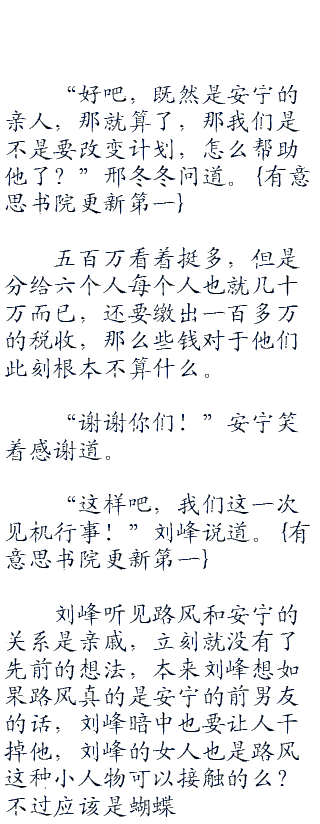 “好吧，既然是安宁的
亲人，那就算了，那我们是
不是要改变计划，怎么帮助
他了？”邢冬冬问道。{有意
思书院更新第一}
五百万看着挺多，但是
分给六个人每个人也就几十
万而已，还要缴出一百多万
的税收，那么些钱对于他们
此刻根本不算什么。
“谢谢你们！”安宁笑
着感谢道。
“这样吧，我们这一次
见机行事！”刘峰说道。{有
意思书院更新第一}
刘峰听见路风和安宁的
关系是亲戚，立刻就没有了
先前的想法，本来刘峰想如
果路风真的是安宁的前男友
的话，刘峰暗中也要让人干
掉他，刘峰的女人也是路风
这种小人物可以接触的么？
不过应该是蝴蝶